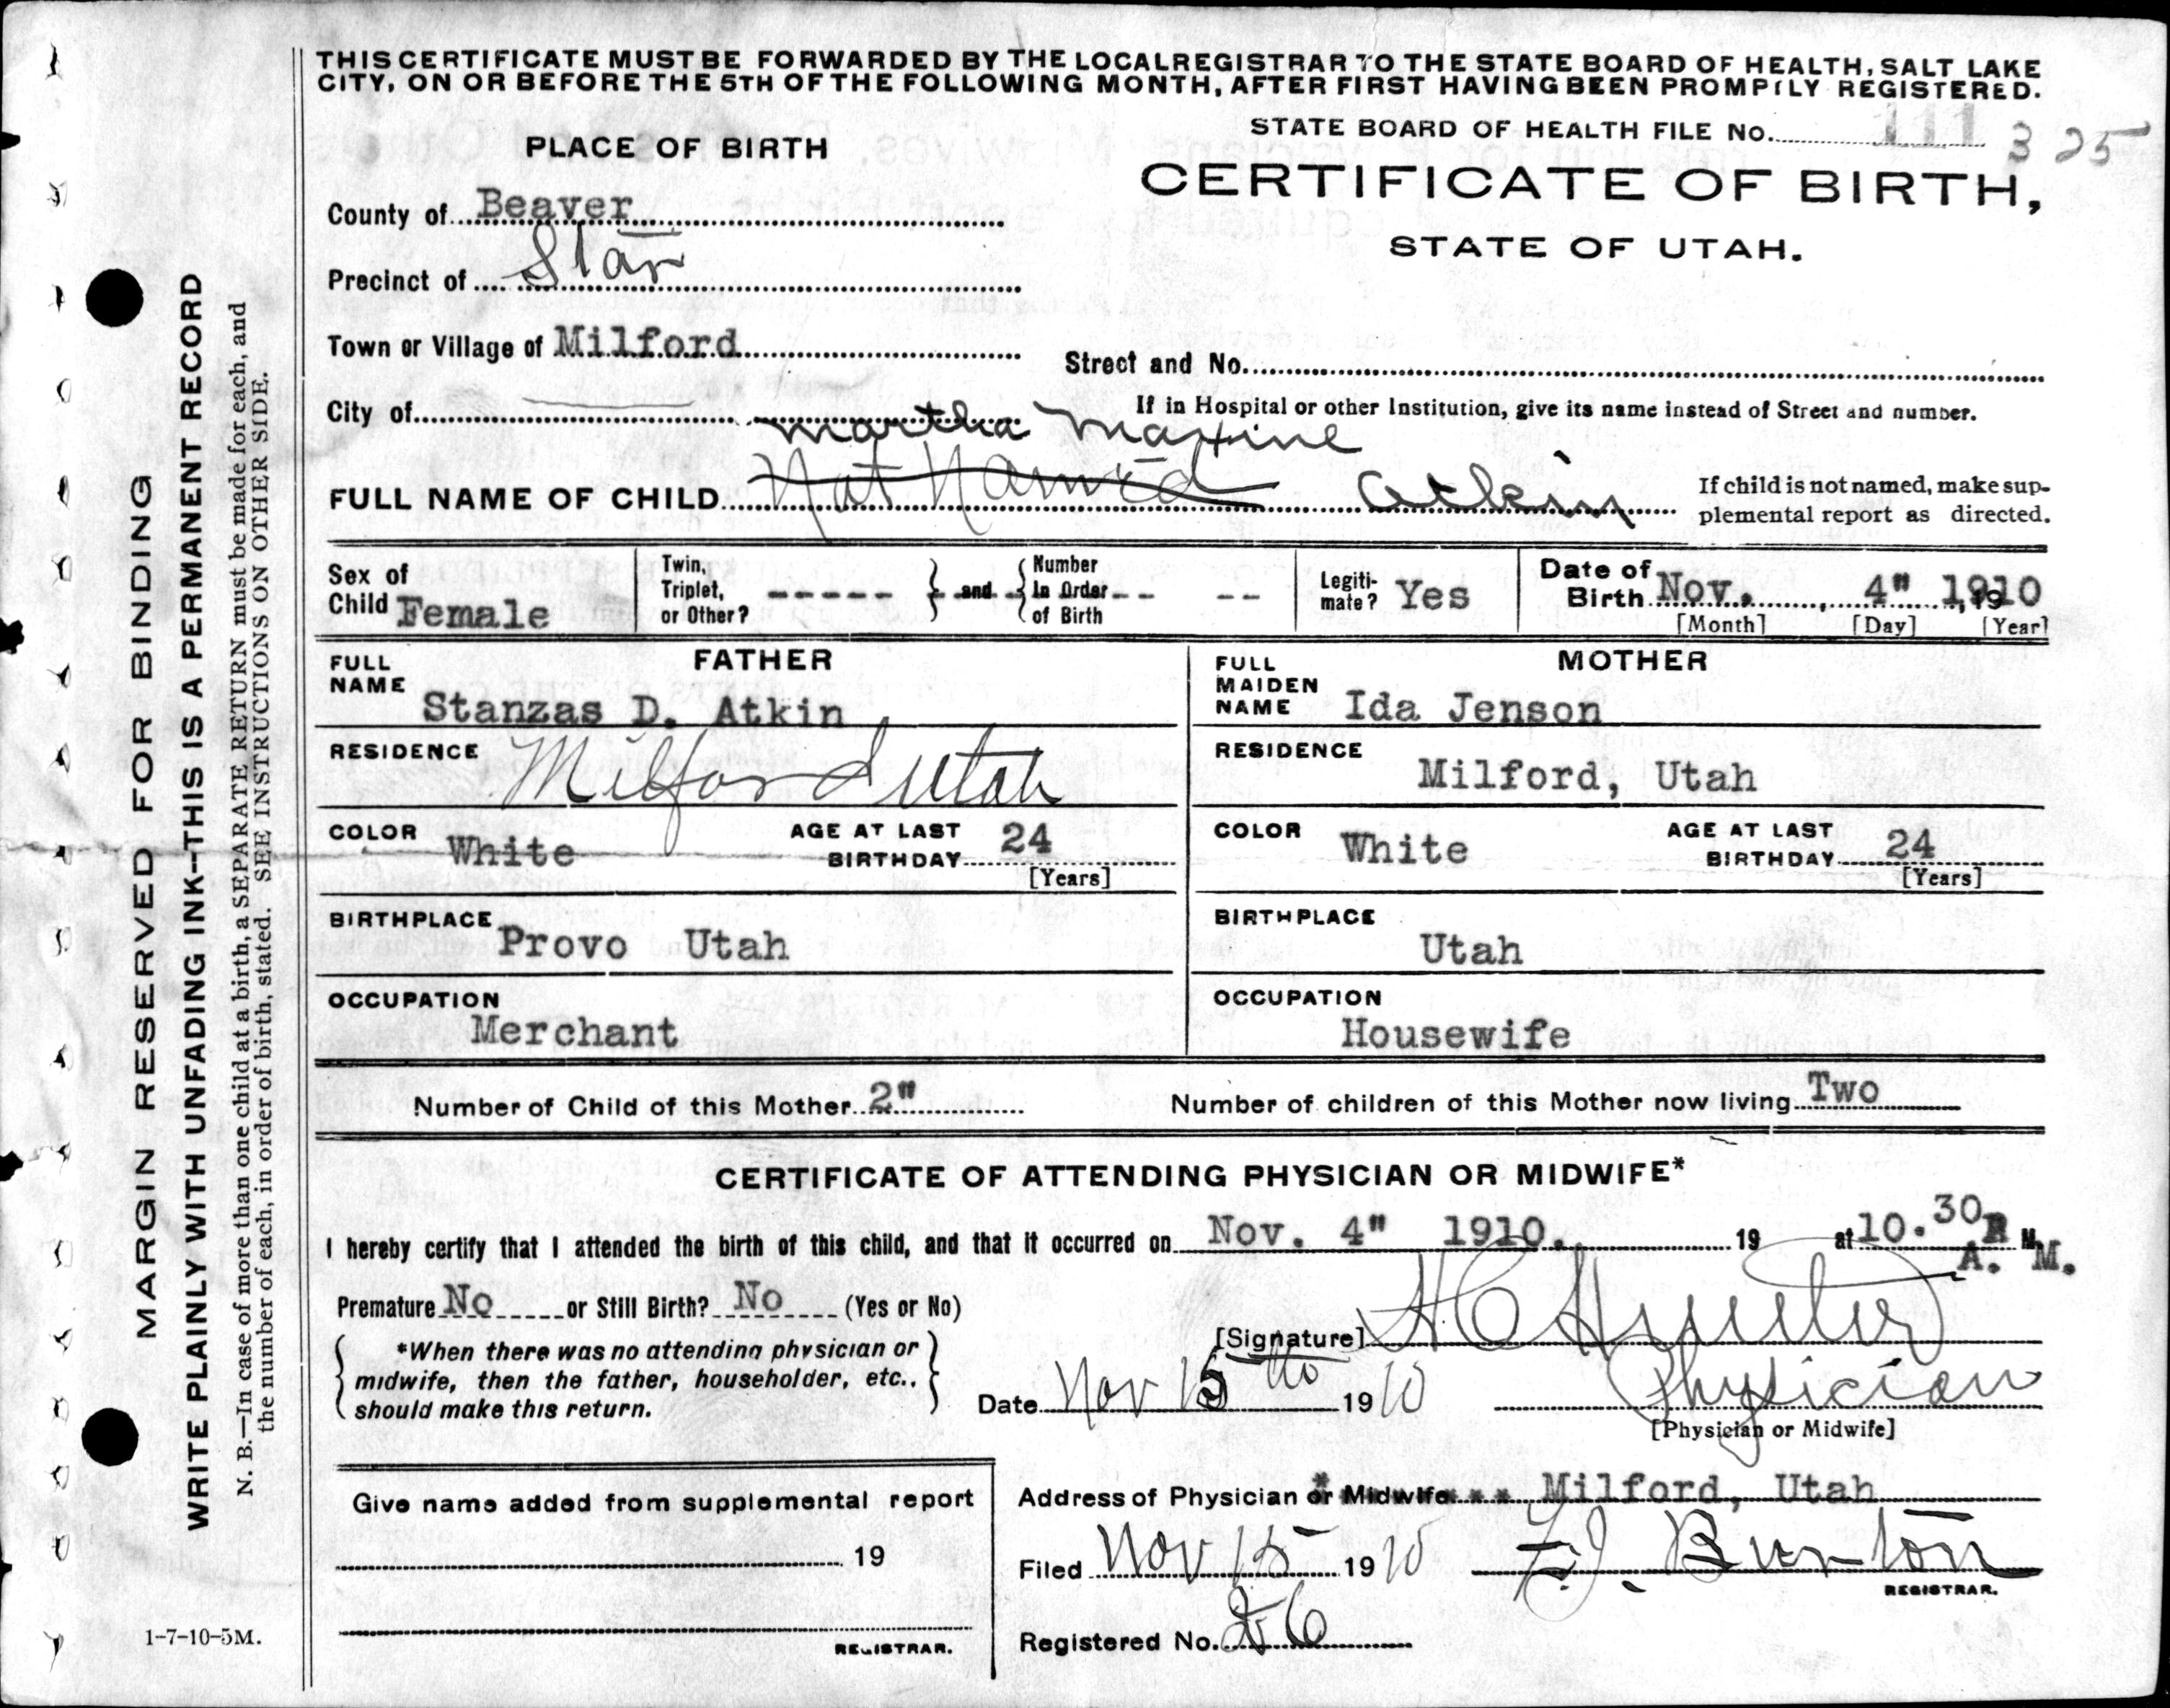 THIS CERTIFICATE MUST BE FORWARDED BY THE LOCAL REGISTRAR TO THE STATE BOARD OF HEALTH, SALT LAKE
CITY, ON OR BEFORE THE 5TH OF THE FOLLOWING MONTH, AFTER FIRST HAVING BEEN PROMPTLY REGISTERED.
STATE BOARD OF HEALTH FILE No. 111 325
PLACE OF BIRTH
CERTIFICATE OF BIRTH,
STATE OF UTAH.
County of Beaver
Precinct of Star
Town or Village of Milford
Street and No.
City of
If in Hospital or other Institution, give its name instead of Street and number.
Martha Maxine
FULL NAME OF CHILD Not Named Atkin
If child is not named, make sup-
plemental report as directed.
Sex of Child Female
Twin, Triplet, or Other? ----- and Number In Order of Birth -- --
Legiti-mate? Yes
Date of Birth Nov. 4" 1910, 19
[Month] [Day] [Year]
FATHER
FULL NAME Stanzas D. Atkin
RESIDENCE Milford Utah
COLOR White AGE AT LAST BIRTHDAY 24
[Years]
BIRTHPLACE Provo Utah
OCCUPATION Merchant
MOTHER
FULL MAIDEN NAME Ida Jenson
RESIDENCE Milford, Utah
COLOR White AGE AT LAST BIRTHDAY 24
[Years]
BIRTHPLACE Utah
OCCUPATION Housewife
Number of Child of this Mother 2"
Number of children of this Mother now living Two
CERTIFICATE OF ATTENDING PHYSICIAN OR MIDWIFE*
I hereby certify that I attended the birth of this child, and that it occurred on Nov. 4" 1910. 19 at 10.30 M.
A. M.
Premature No or Still Birth? No (Yes or No)
[Signature] H C Hunter
*When there was no attending physician or
midwife, then the father, householder, etc.,
should make this return.
Date Nov 15th 1910
Physician
[Physician or Midwife]
Give name added from supplemental report
19
REGISTRAR.
Address of Physician or Midwife Milford, Utah
Filed Nov 15 1910 Burton
REGISTRAR.
Registered No. 26
MARGIN RESERVED FOR BINDING
WRITE PLAINLY WITH UNFADING INK—THIS IS A PERMANENT RECORD
N. B.—In case of more than one child at a birth, a SEPARATE RETURN must be made for each, and
the number of each, in order of birth, stated. SEE INSTRUCTIONS ON OTHER SIDE.
1-7-10-5M.